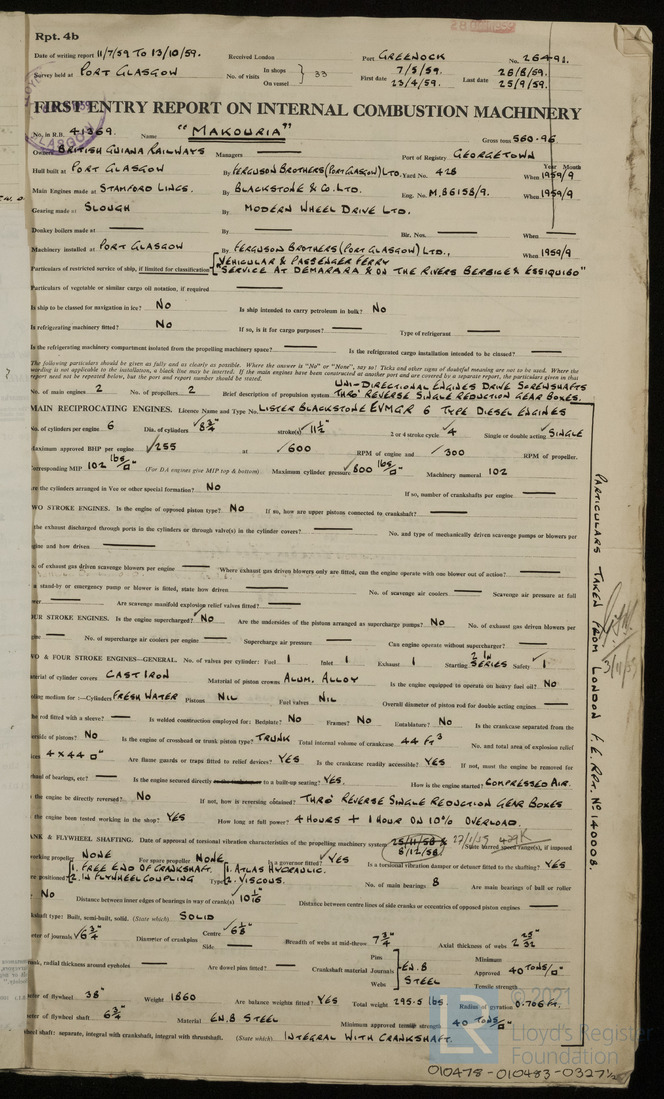 Rpt. 4b
Date of writing report 11/7/59 TO 13/10/59. Received London Port GREENOCK No. 26491.
Survey held at PORT GLASGOW No. of visits In shops On vessel } 33 First date 7/5/59. 23/4/59. Last date 28/8/59. 25/9/59.
FIRST ENTRY REPORT ON INTERNAL COMBUSTION MACHINERY
No. in R.B. 41369. Name "MAKOURIA" Gross tons 560.96
Owners BRITISH GUIANA RAILWAYS Managers Port of Registry GEORGETOWN
Year Month
Hull built at PORT GLASGOW By FERGUSON BROTHERS (PORT GLASGOW) LTD. Yard No. 428 When 1959/9
Main Engines made at STAMFORD LINCS. By BLACKSTONE & CO. LTD. Eng. No. M.86158/9. When 1959/9
Gearing made at SLOUGH By MODERN WHEEL DRIVE LTD.
Donkey boilers made at By Blr. Nos. When
Machinery installed at PORT GLASGOW By FERGUSON BROTHERS (PORT GLASGOW) LTD., When 1959/9
Particulars of restricted service of ship, if limited for classification "VEHICULAR & PASSENGER FERRY
SERVICE AT DEMARARA & ON THE RIVERS BERBICE & ESSIQUIBO"
Particulars of vegetable or similar cargo oil notation, if required
Is ship to be classed for navigation in ice? NO Is ship intended to carry petroleum in bulk? NO
Is refrigerating machinery fitted? NO If so, is it for cargo purposes? Type of refrigerant
Is the refrigerating machinery compartment isolated from the propelling machinery space? Is the refrigerated cargo installation intended to be classed?
The following particulars should be given as fully and as clearly as possible. Where the answer is "No" or "None", say so! Ticks and other signs of doubtful meaning are not to be used. Where the
wording is not applicable to the installation, a black line may be inserted. If the main engines have been constructed at another port and are covered by a separate report, the particulars given in this
report need not be repeated below, but the port and report number should be stated.
UNI-DIRECTIONAL ENGINES DRIVE SCREWSHAFTS
No. of main engines 2 No. of propellers 2 Brief description of propulsion system THRO' REVERSE SINGLE REDUCTION GEAR BOXES.
MAIN RECIPROCATING ENGINES. Licence Name and Type No. LISTER BLACKSTONE EVMGR 6 TYPE DIESEL ENGINES
No. of cylinders per engine 6 Dia. of cylinders 8¾" stroke(s) 11½" 2 or 4 stroke cycle 4 Single or double acting SINGLE
Maximum approved BHP per engine 255 at 600 RPM of engine and 300 RPM of propeller.
Corresponding MIP 102 lbs/□" (For DA engines give MIP top & bottom) Maximum cylinder pressure 800 lbs/□" Machinery numeral 102
Are the cylinders arranged in Vee or other special formation? NO If so, number of crankshafts per engine
TWO STROKE ENGINES. Is the engine of opposed piston type? NO If so, how are upper pistons connected to crankshaft?
the exhaust discharged through ports in the cylinders or through valve(s) in the cylinder covers? No. and type of mechanically driven scavenge pumps or blowers per
gine and how driven
. of exhaust gas driven scavenge blowers per engine Where exhaust gas driven blowers only are fitted, can the engine operate with one blower out of action?
a stand-by or emergency pump or blower is fitted, state how driven No. of scavenge air coolers Scavenge air pressure at full
wer Are scavenge manifold explosion relief valves fitted?
OUR STROKE ENGINES. Is the engine supercharged? NO Are the undersides of the pistons arranged as supercharge pumps? NO No. of exhaust gas driven blowers per
gine No. of supercharge air coolers per engine Supercharge air pressure Can engine operate without supercharger?
WO & FOUR STROKE ENGINES—GENERAL. No. of valves per cylinder: Fuel 1 Inlet 1 Exhaust 1 Starting 2 IN SERIES Safety 1
aterial of cylinder covers CAST IRON Material of piston crowns ALUM. ALLOY Is the engine equipped to operate on heavy fuel oil? NO
oling medium for :—Cylinders FRESH WATER Pistons NIL Fuel valves NIL Overall diameter of piston rod for double acting engines
he rod fitted with a sleeve? Is welded construction employed for: Bedplate? NO Frames? NO Entablature? NO Is the crankcase separated from the
erside of pistons? NO Is the engine of crosshead or trunk piston type? TRUNK Total internal volume of crankcase 44 FT³ No. and total area of explosion relief
ices 4 × 44 □" Are flame guards or traps fitted to relief devices? YES Is the crankcase readily accessible? YES If not, must the engine be removed for
rhaul of bearings, etc? Is the engine secured directly to a built-up seating? YES. How is the engine started? COMPRESSED AIR.
the engine be directly reversed? NO If not, how is reversing obtained? THRO' REVERSE SINGLE REDUCTION GEAR BOXES
the engine been tested working in the shop? YES How long at full power? 4 HOURS + 1 HOUR ON 10% OVERLOAD.
ANK & FLYWHEEL SHAFTING. Date of approval of torsional vibration characteristics of the propelling machinery system 25/11/58 & 8/12/58 27/1/59 State barred speed range(s), if imposed
working propeller NONE For spare propeller NONE Is a governor fitted? YES Is a torsional vibration damper or detuner fitted to the shafting? YES
re positioned? 1. FREE END OF CRANKSHAFT. 2. IN FLYWHEEL COUPLING Type 1. ATLAS HYDRAULIC. 2. VISCOUS. No. of main bearings 8 Are main bearings of ball or roller
NO Distance between inner edges of bearings in way of crank(s) 10 1/16" Distance between centre lines of side cranks or eccentrics of opposed piston engines
kshaft type: Built, semi-built, solid. (State which) SOLID
eter of journals 6¾" Diameter of crankpins Centre 6⅛" Side Breadth of webs at mid-throw 7¾" Axial thickness of webs 2 25/32"
runk, radial thickness around eyeholes Are dowel pins fitted? Crankshaft material Pins Journals Webs EN.8 STEEL Minimum Approved Tensile strength 40 TONS/□"
eter of flywheel 38" Weight 1860 Are balance weights fitted? YES Total weight 295.5 lbs. Radius of gyration 0.706 FT.
eter of flywheel shaft 6¾" Material EN.8 STEEL Minimum approved tensile strength 40 TONS/□"
heel shaft: separate, integral with crankshaft, integral with thrustshaft. (State which) INTEGRAL WITH CRANKSHAFT.
PARTICULARS TAKEN FROM LONDON F.E. RPT. No 140008.
© 2021
LR
Lloyd's Register
Foundation
010478-010483-0327½